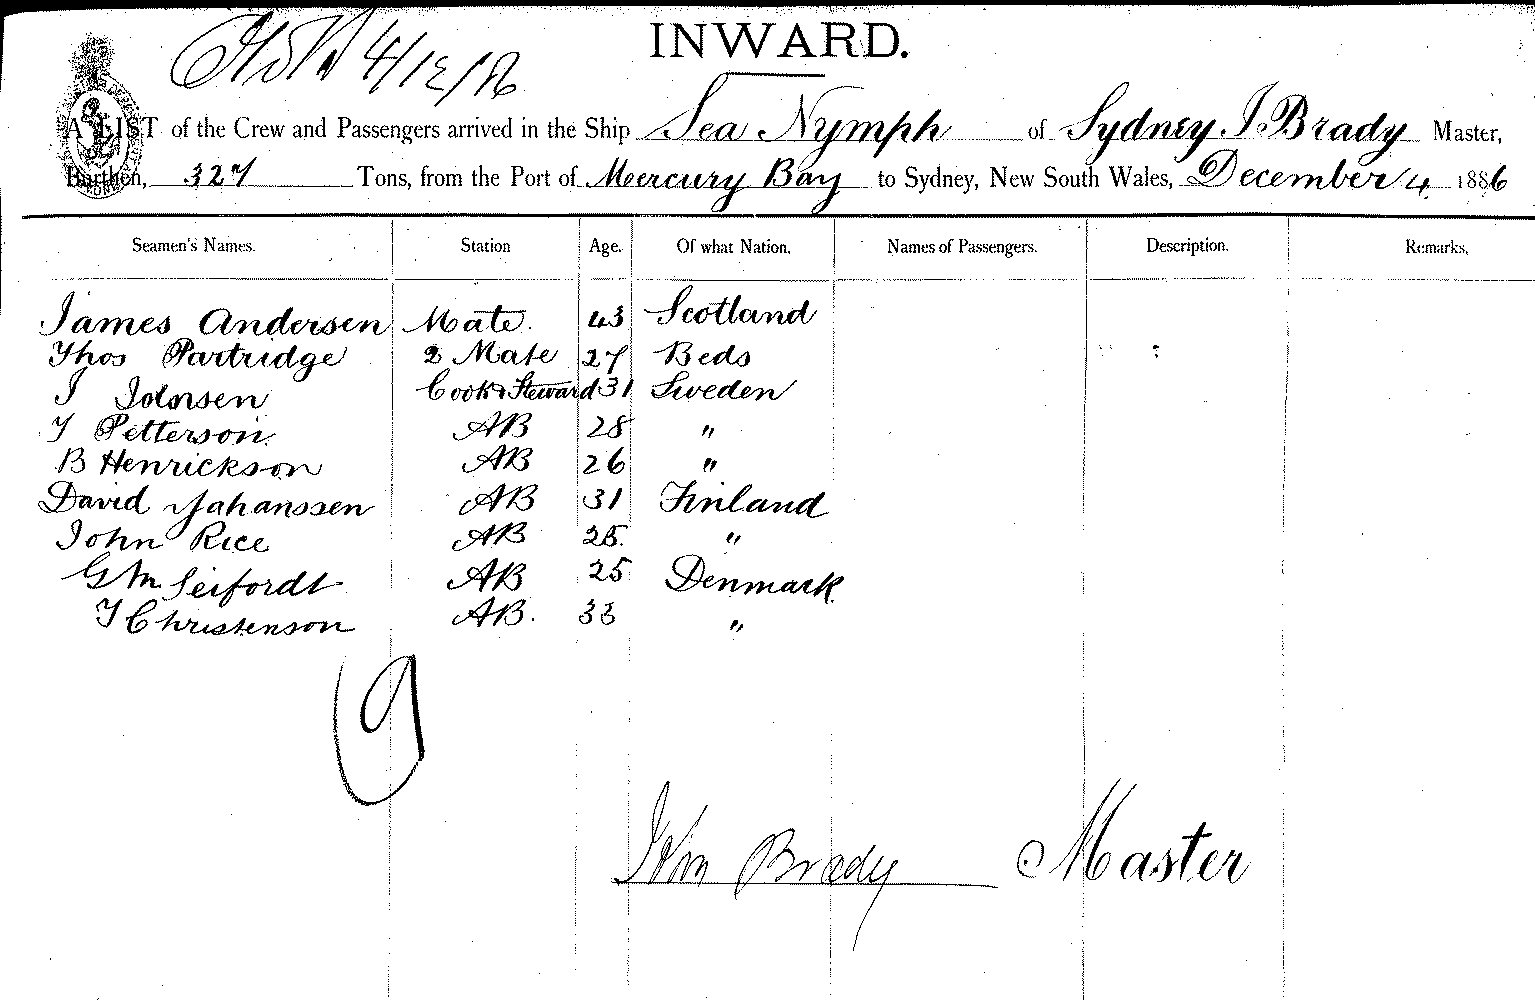 4/12/86
INWARD.
A LIST of the Crew and Passengers arrived in the Ship Sea Nymph of Sydney J Brady Master,
Burthen, 327 Tons, from the Port of Mercury Bay to Sydney, New South Wales, December 4 1886
Seamen's Names. Station Age. Of what Nation. Names of Passengers. Description. Remarks.
James Andersen Mate. 43 Scotland
Thos Partridge 2 Mate 27 Beds
J Johnsen Cook & Steward 31 Sweden
T Petterson AB 28 "
B Henrickson AB 26 "
David Jahanssen AB 31 Finland
John Rice AB 25. "
G M Seifordt AB 25 Denmark
T Christenson AB. 33 "
9
John Brady Master